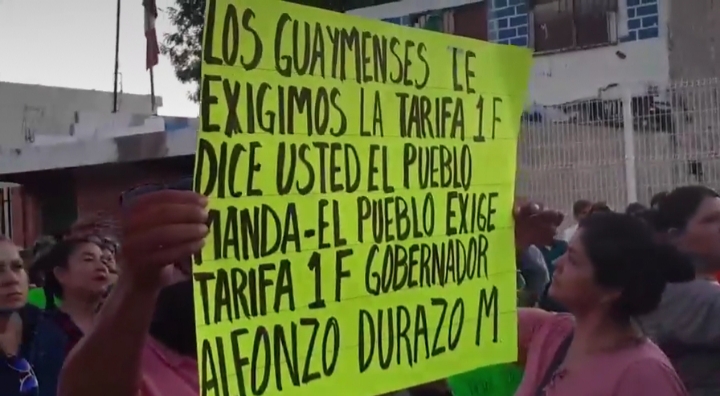 LOS GUAYMENSES LE
EXIGIMOS LA TARIFA 1F
DICE USTED EL PUEBLO
MANDA-EL PUEBLO EXIGE
TARIFA 1F GOBERNADOR
ALFONZO DURAZO M.